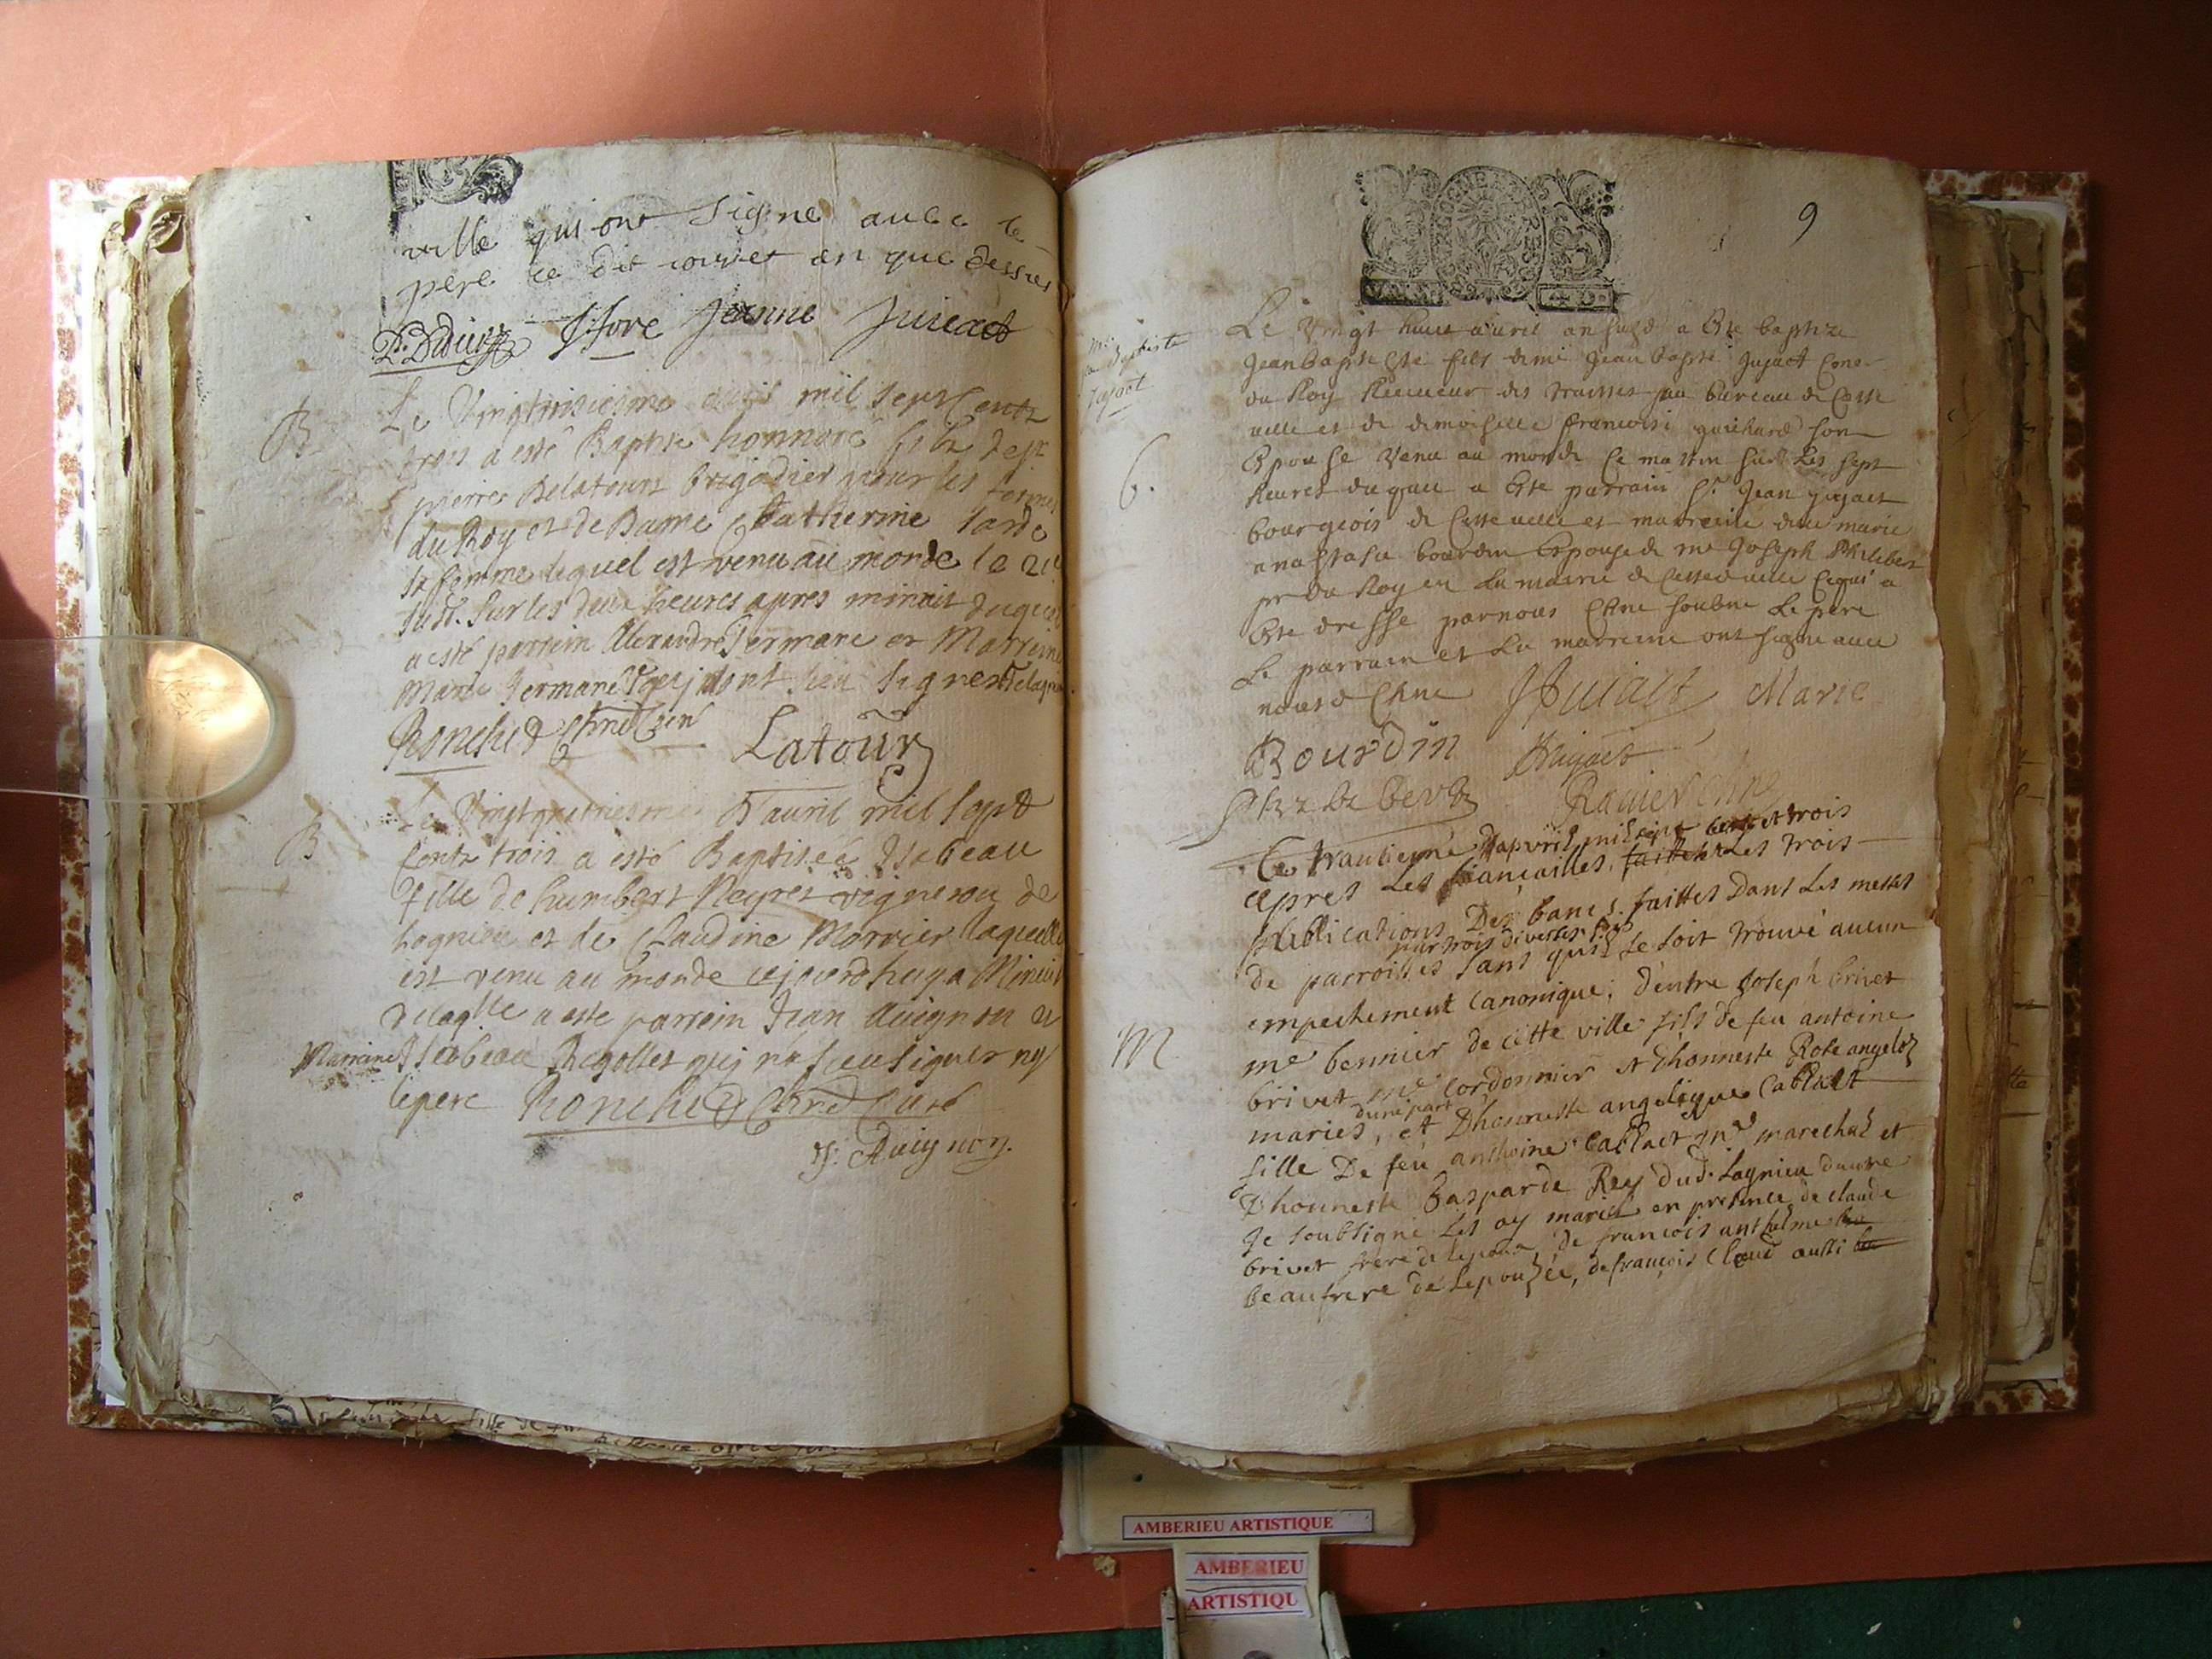 ville qui ont signé avec le
pere ce dit jour et an que dessus
Jeanne Juieact
B
Le Vingttroisiesme avril mil sept Centz
trois a esté Baptisé honnoré filz de sr
pierre Delatour brigadier pour les fermes
du Roy et de Dame Catherine
sa femme lequel est venu au monde le
sud. sur les deux heures apres minuit duquel
a esté parrein Alexandre Germane et Marreine
Marie Germane
Ronchet Latour
B
Le Vingtquatriesme D'auril mil sept
Centz trois a esté Baptiseé Isabeau
fille de humbert Neyret vigneron de
Lagnieu et de Claudine Morrier laquelle
est venu au monde cejourdhuy a Minuit
delaqlle a este parrein Jean Avignon et
Marreine Isabeau Rigollet qui n'a sceu signer ny
le pere Ronchet Curé
J: Avignon.
9
Me
jean Baptiste
Jujact
6.
Le Vingt huict avril an susd a Este baptize
Jean Baptiste fils de me Jean bapte Jujact Cons
du Roy Receueur des traittes au bureau de Cette
ville et de dimoiselle francoise guichard son
Epouse Venu au monde Ce matin sur Les sept
heures duquel a Este parrain Sr. Jean jujact
bourgeois de Cette ville et marreine dlle marie
anastasie bourdin Espouse de me Joseph Philibert
pr du Roy en La mairie de Cette ville Ce qui a
Este dressé par nous Chne soubne Le pere
Le parrain et La marreine ont signe avec
nous Chne JJuiact Marie
Bourdin Jujact
Philibert
M
Ce trantieme D'apvril mil sept cent et trois
apres Les fiançailles, Les trois
publications Des bancs faittes Dans Les messes
par trois diverses fois
de parroisses sans qu'il se soit trouvé aucun
empechement Canonique; d'entre Joseph brivet
me bennier de cette ville fils de feu antoine
brivet me Cordonnier et D'honneste Rose angelot
d'une part
mariés, et D'honneste angelique Cabhact
fille De feu anthoine Cabhact me marechal et
D'honneste Gasparde Rey dud. Lagnieu d'autre
Je soubsigné Les ay mariés en presence de claude
brivet frere de Lepoux, de francois anthelme
beaufrere de Lepouzée, de françois Cloud aussi
AMBERIEU ARTISTIQUE
AMBERIEU
ARTISTIQU